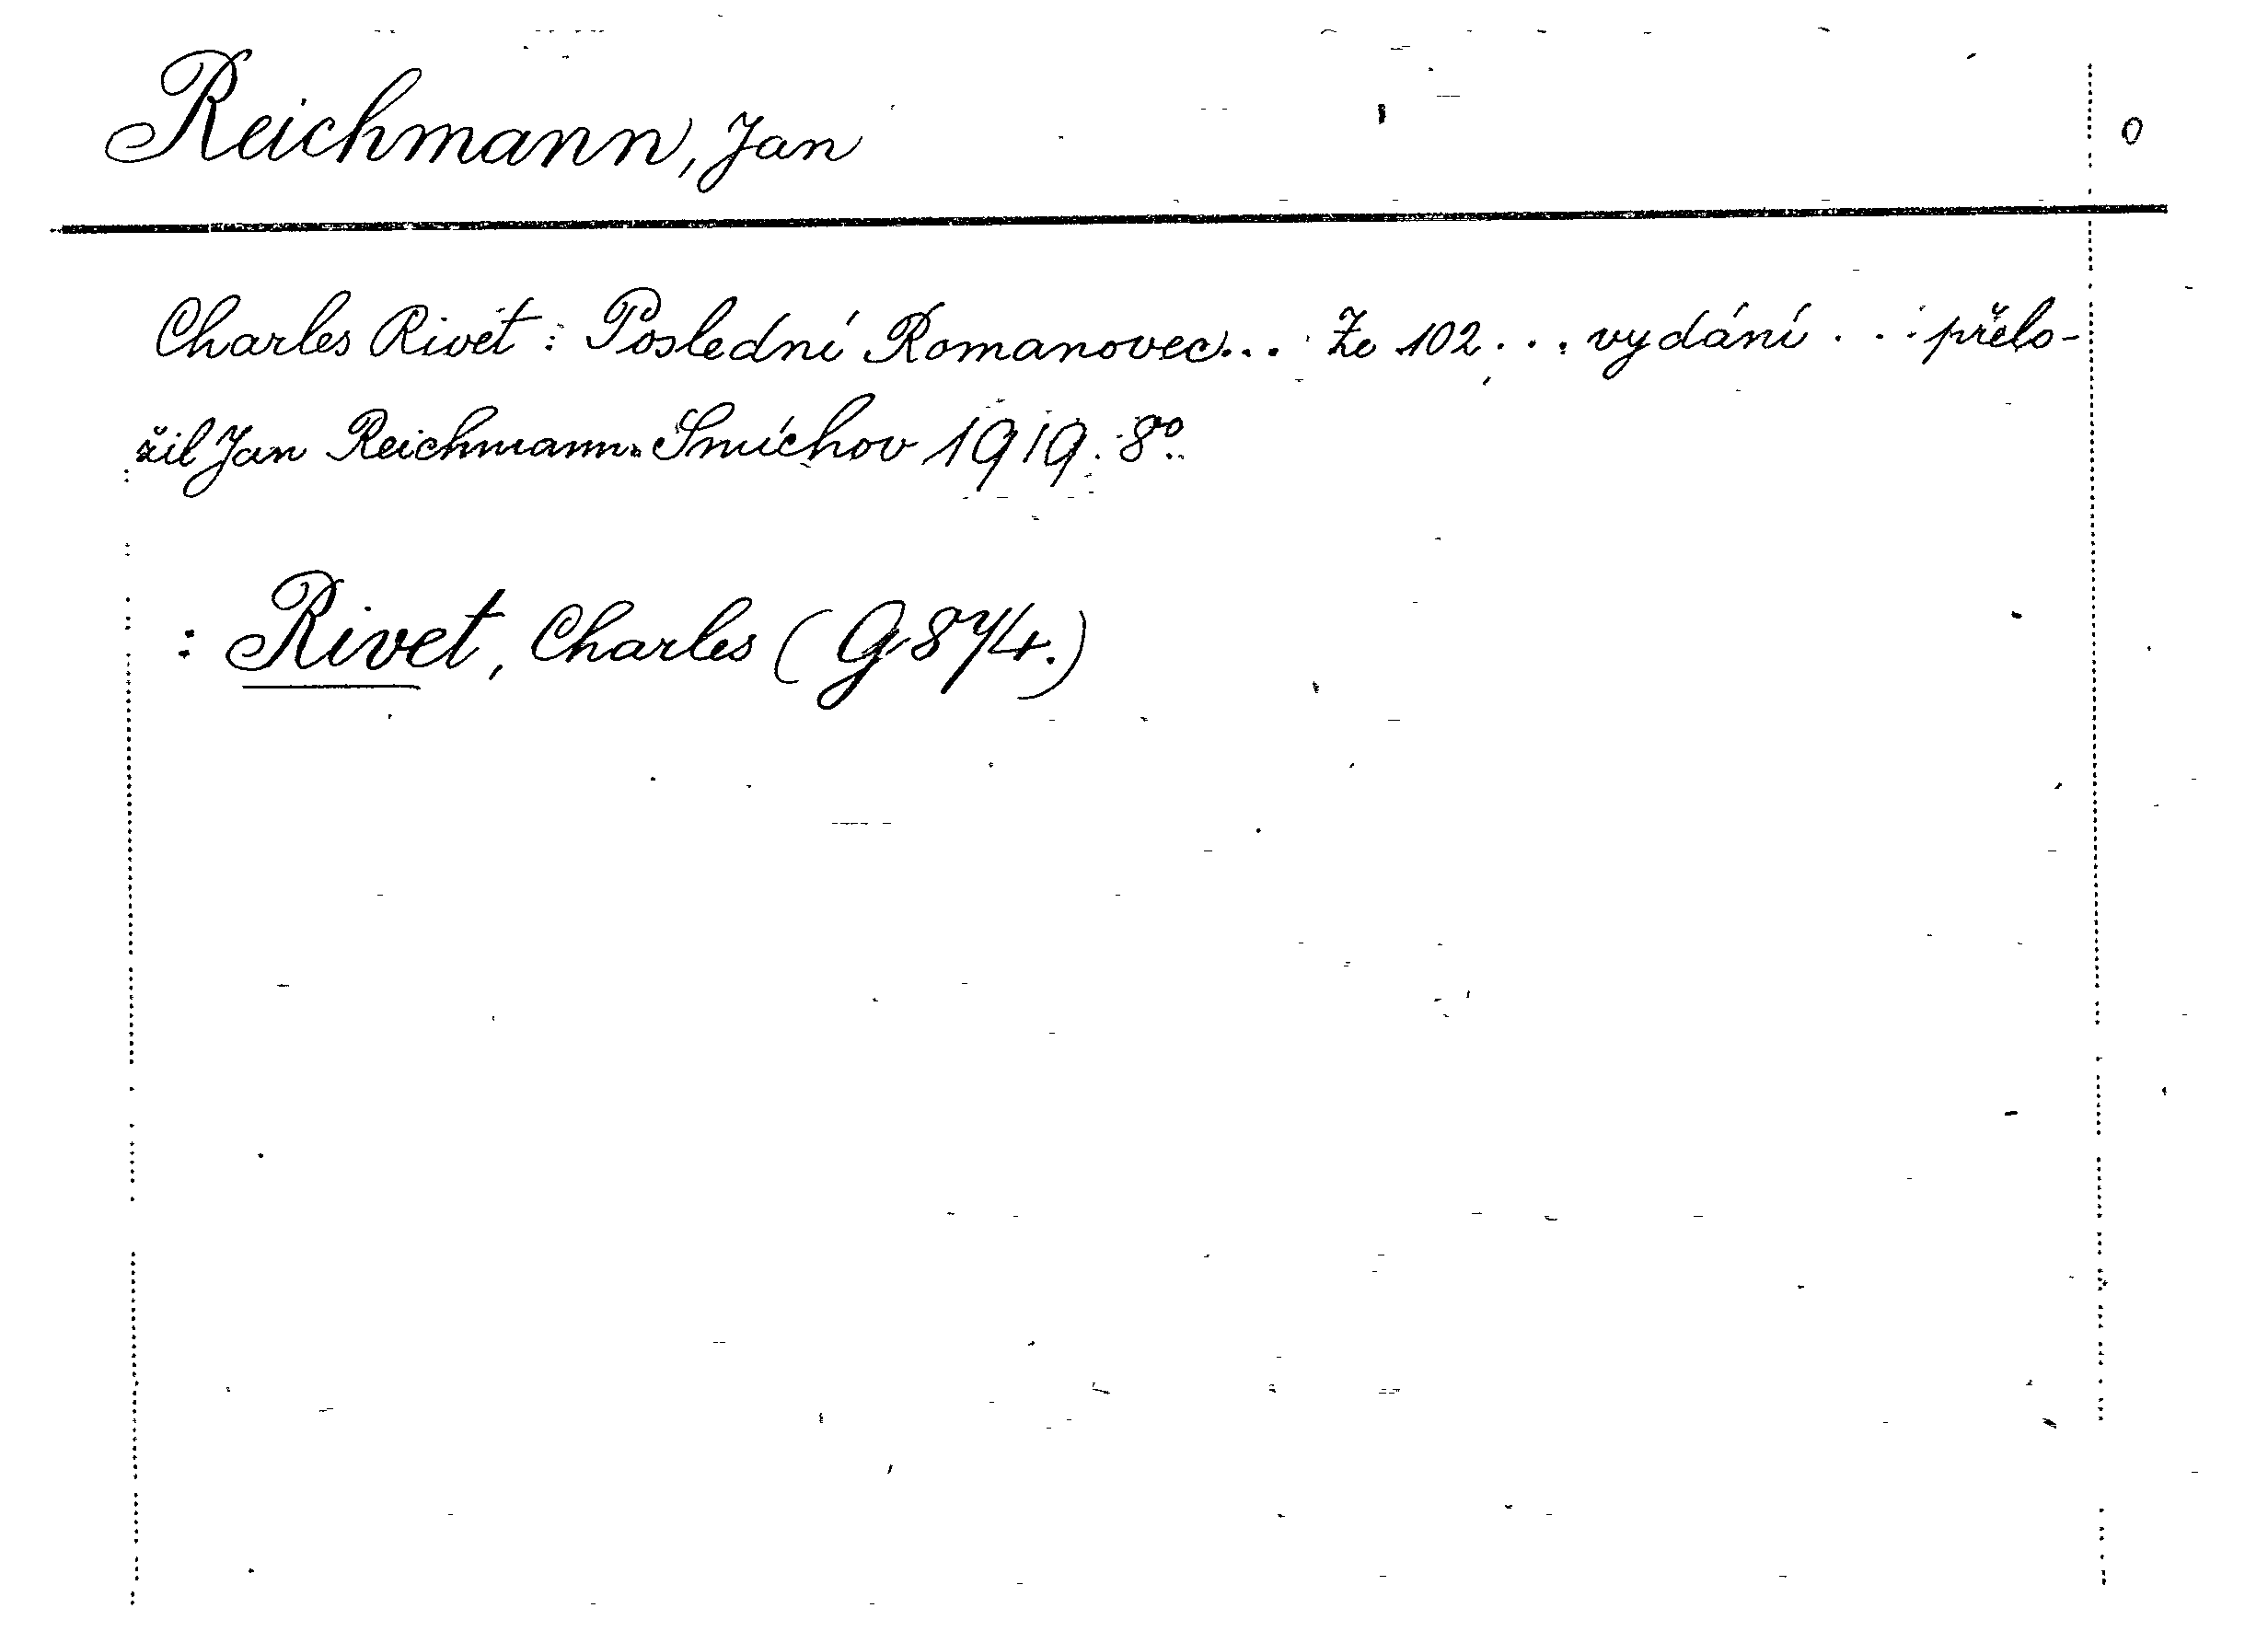 Reichmann, Jan
0
Charles Rivet: Poslední Romanovec... Ze 102 ... vydání ... přelo-
žil Jan Reichmann. Smíchov 1919. 8°.
: Rivet, Charles (G 874.)